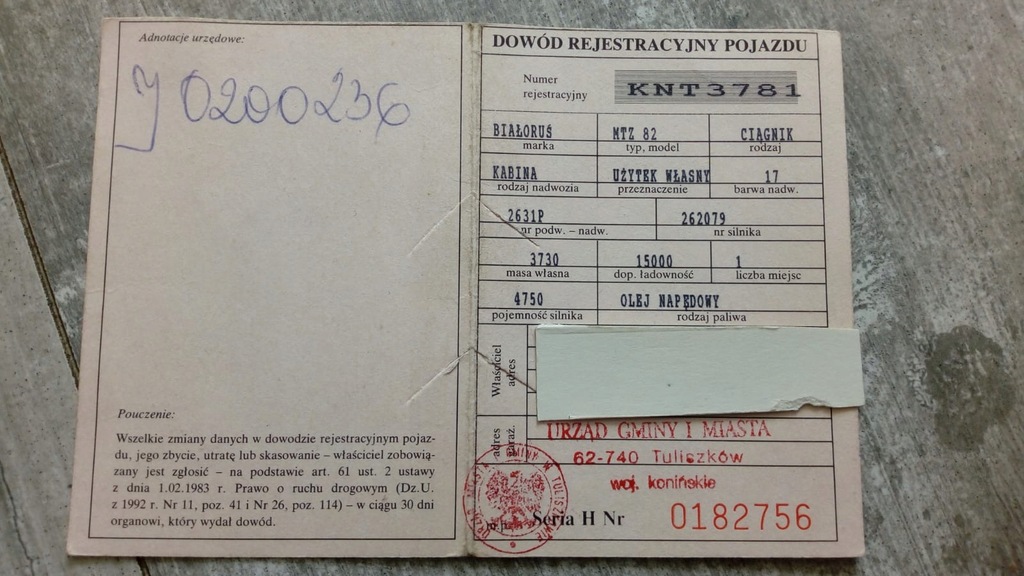 Adnotacje urzędowe:
J 0200236
Pouczenie:
Wszelkie zmiany danych w dowodzie rejestracyjnym pojaz-
du, jego zbycie, utratę lub skasowanie – właściciel zobowią-
zany jest zgłosić – na podstawie art. 61 ust. 2 ustawy
z dnia 1.02.1983 r. Prawo o ruchu drogowym (Dz.U.
z 1992 r. Nr 11, poz. 41 i Nr 26, poz. 114) – w ciągu 30 dni
organowi, który wydał dowód.
DOWÓD REJESTRACYJNY POJAZDU
Numer
rejestracyjny
KNT3781
BIAŁORUŚ MTZ 82 CIĄGNIK
marka typ, model rodzaj
KABINA UŻYTEK WŁASNY 17
rodzaj nadwozia przeznaczenie barwa nadw.
2631P 262079
nr podw. – nadw. nr silnika
3730 15000 1
masa własna dop. ładowność liczba miejsc
4750 OLEJ NAPĘDOWY
pojemność silnika rodzaj paliwa
Właściciel
adres
adres
garaż.
URZĄD GMINY I MIASTA
62-740 Tuliszków
woj. konińskie
Seria H Nr 0182756